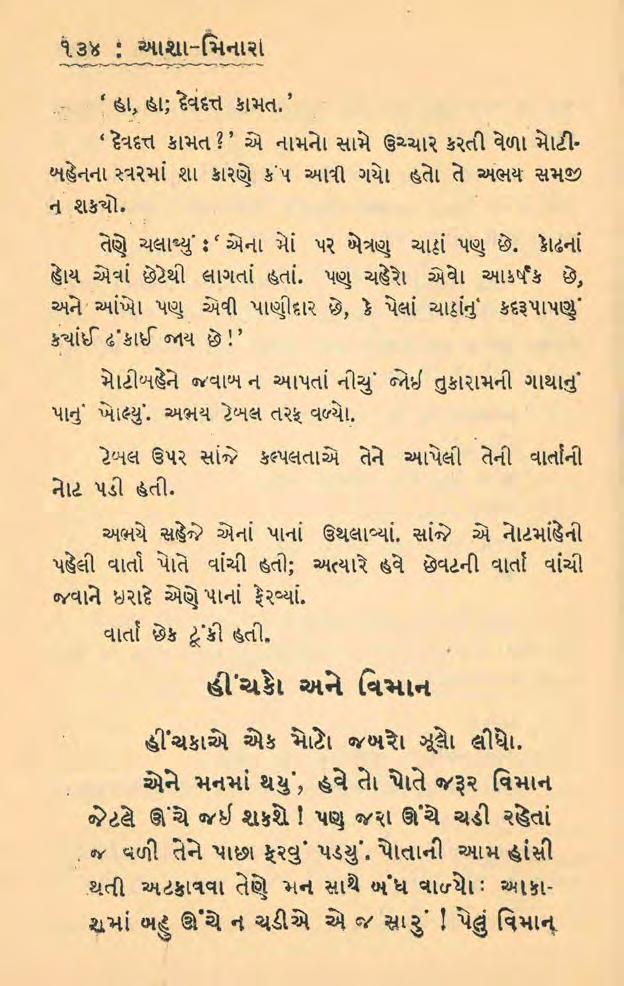 ૧૩૪ : આશા-મિનારા
‘ હા, હા; દેવદત્ત કામત.’
‘ દેવદત્ત કામત ? ’ એ નામનો સામે ઉચ્ચાર કરતી વેળા મોટી-
બહેનના સ્વરમાં શા કારણે કંપ આવી ગયો હતો તે અભય સમજી
ન શક્યો.
તેણે ચલાવ્યું : ‘ એના મોં પર બેત્રણ ચાઠાં પણ છે. કોઢનાં
હોય એવાં છેટેથી લાગતાં હતાં. પણ ચહેરો એવો આકર્ષક છે,
અને આંખો પણ એવી પાણીદાર છે, કે પેલાં ચાઠાંનું કદરૂપાપણું
ક્યાંઈ ઢંકાઈ જાય છે !’
મોટીબહેને જવાબ ન આપતાં નીચું જોઈ તુકારામની ગાથાનું
પાનું ખોલ્યું. અભય ટેબલ તરફ વળ્યો.
ટેબલ ઉપર સાંજે કલ્પલતાએ તેને આપેલી તેની વાર્તાની
નોટ પડી હતી.
અભયે સહેજે એનાં પાનાં ઉથલાવ્યાં. સાંજે એ નોટમાંહેની
પહેલી વાર્તા પોતે વાંચી હતી; અત્યારે હવે છેવટની વાર્તા વાંચી
જવાને ઇરાદે એણે પાનાં ફેરવ્યાં.
વાર્તા છેક ટૂંકી હતી.
હીંચકો અને વિમાન
હીંચકાએ એક મોટો જબરો ઝૂલો લીધો.
એને મનમાં થયું, હવે તો પોતે જરૂર વિમાન
જેટલે ઊંચે જઈ શકશે ! પણ જરા ઊંચે ચડી રહેતાં
જ વળી તેને પાછા ફરવું પડ્યું. પોતાની આમ હાંસી
થતી અટકાવવા તેણે મન સાથે બંધ વાળ્યો : આકા-
શમાં બહુ ઊંચે ન ચડીએ એ જ સારું ! પેલું વિમાન